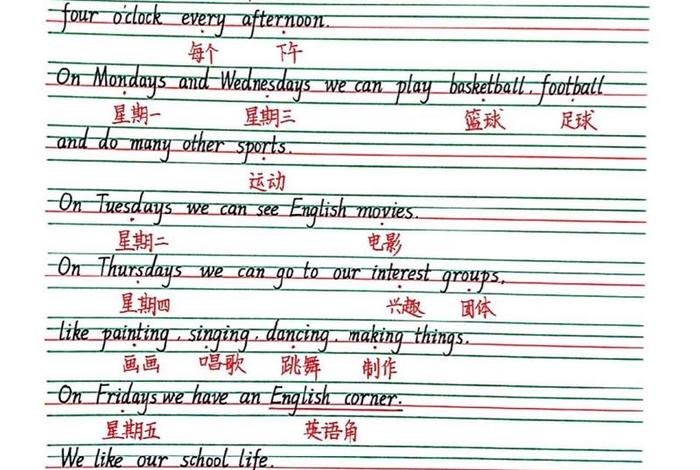 four o'clock every afternoon.
每个 下午
On Mondays and Wednesdays we can play basketball, football
星期一 星期三 篮球 足球
and do many other sports.
运动
On Tuesdays we can see English movies.
星期二 电影
On Thursdays we can go to our interest groups,
星期四 兴趣 团体
like painting, singing, dancing, making things.
画画 唱歌 跳舞 制作
On Fridays we have an English corner.
星期五 英语角
We like our school life.